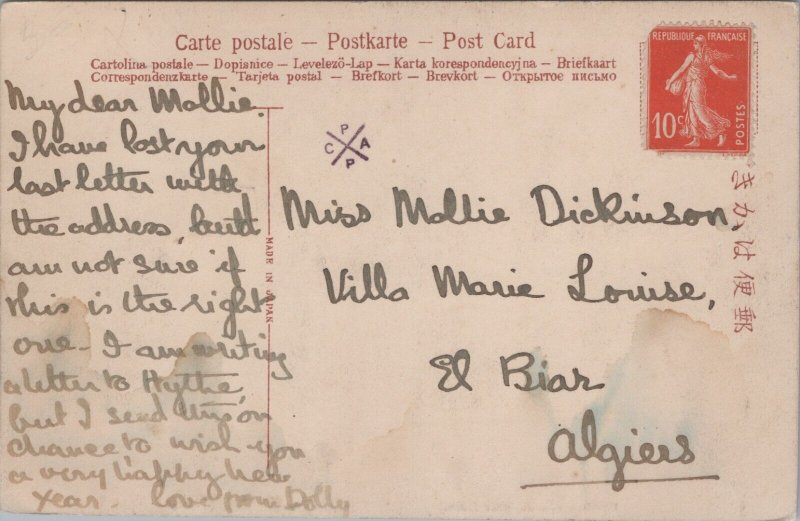 Carte postale — Postkarte — Post Card
Cartolina postale — Dopisnice — Levelező-Lap — Karta korespondencyjna — Briefkaart
Correspondenzkarte — Tarjeta postal — Brefkort — Brevkort — Открытое письмо
REPUBLIQUE FRANÇAISE
10c
POSTES
P
C A
P
きかは便郵
MADE IN JAPAN
My dear Mollie.
I have lost your
last letter with
the address, but I
am not sure if
this is the right
one. I am writing
a letter to Hythe,
but I send this on
chance to wish you
a very happy New
Year. love from Dolly
Miss Mollie Dickinson,
Villa Marie Louise,
El Biar
Algiers